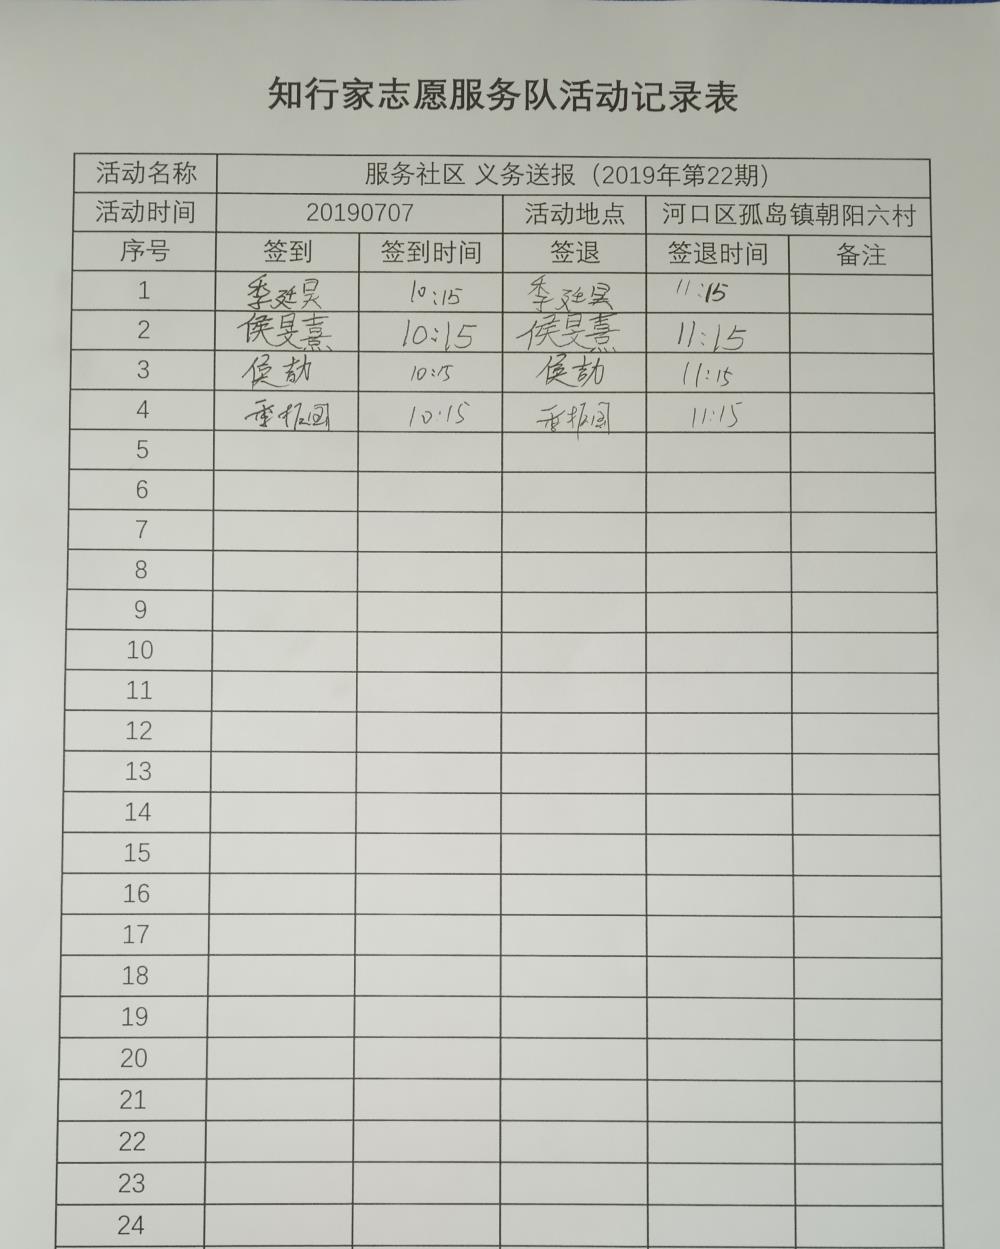 知行家志愿服务队活动记录表
活动名称 服务社区 义务送报（2019年第22期）
活动时间 20190707 活动地点 河口区孤岛镇朝阳六村
序号 签到 签到时间 签退 签退时间 备注
1 季廷昊 10:15 季廷昊 11:15
2 侯旻熹 10:15 侯旻熹 11:15
3 侯劼 10:15 侯劼 11:15
4 季振国 10:15 季振国 11:15
5
6
7
8
9
10
11
12
13
14
15
16
17
18
19
20
21
22
23
24